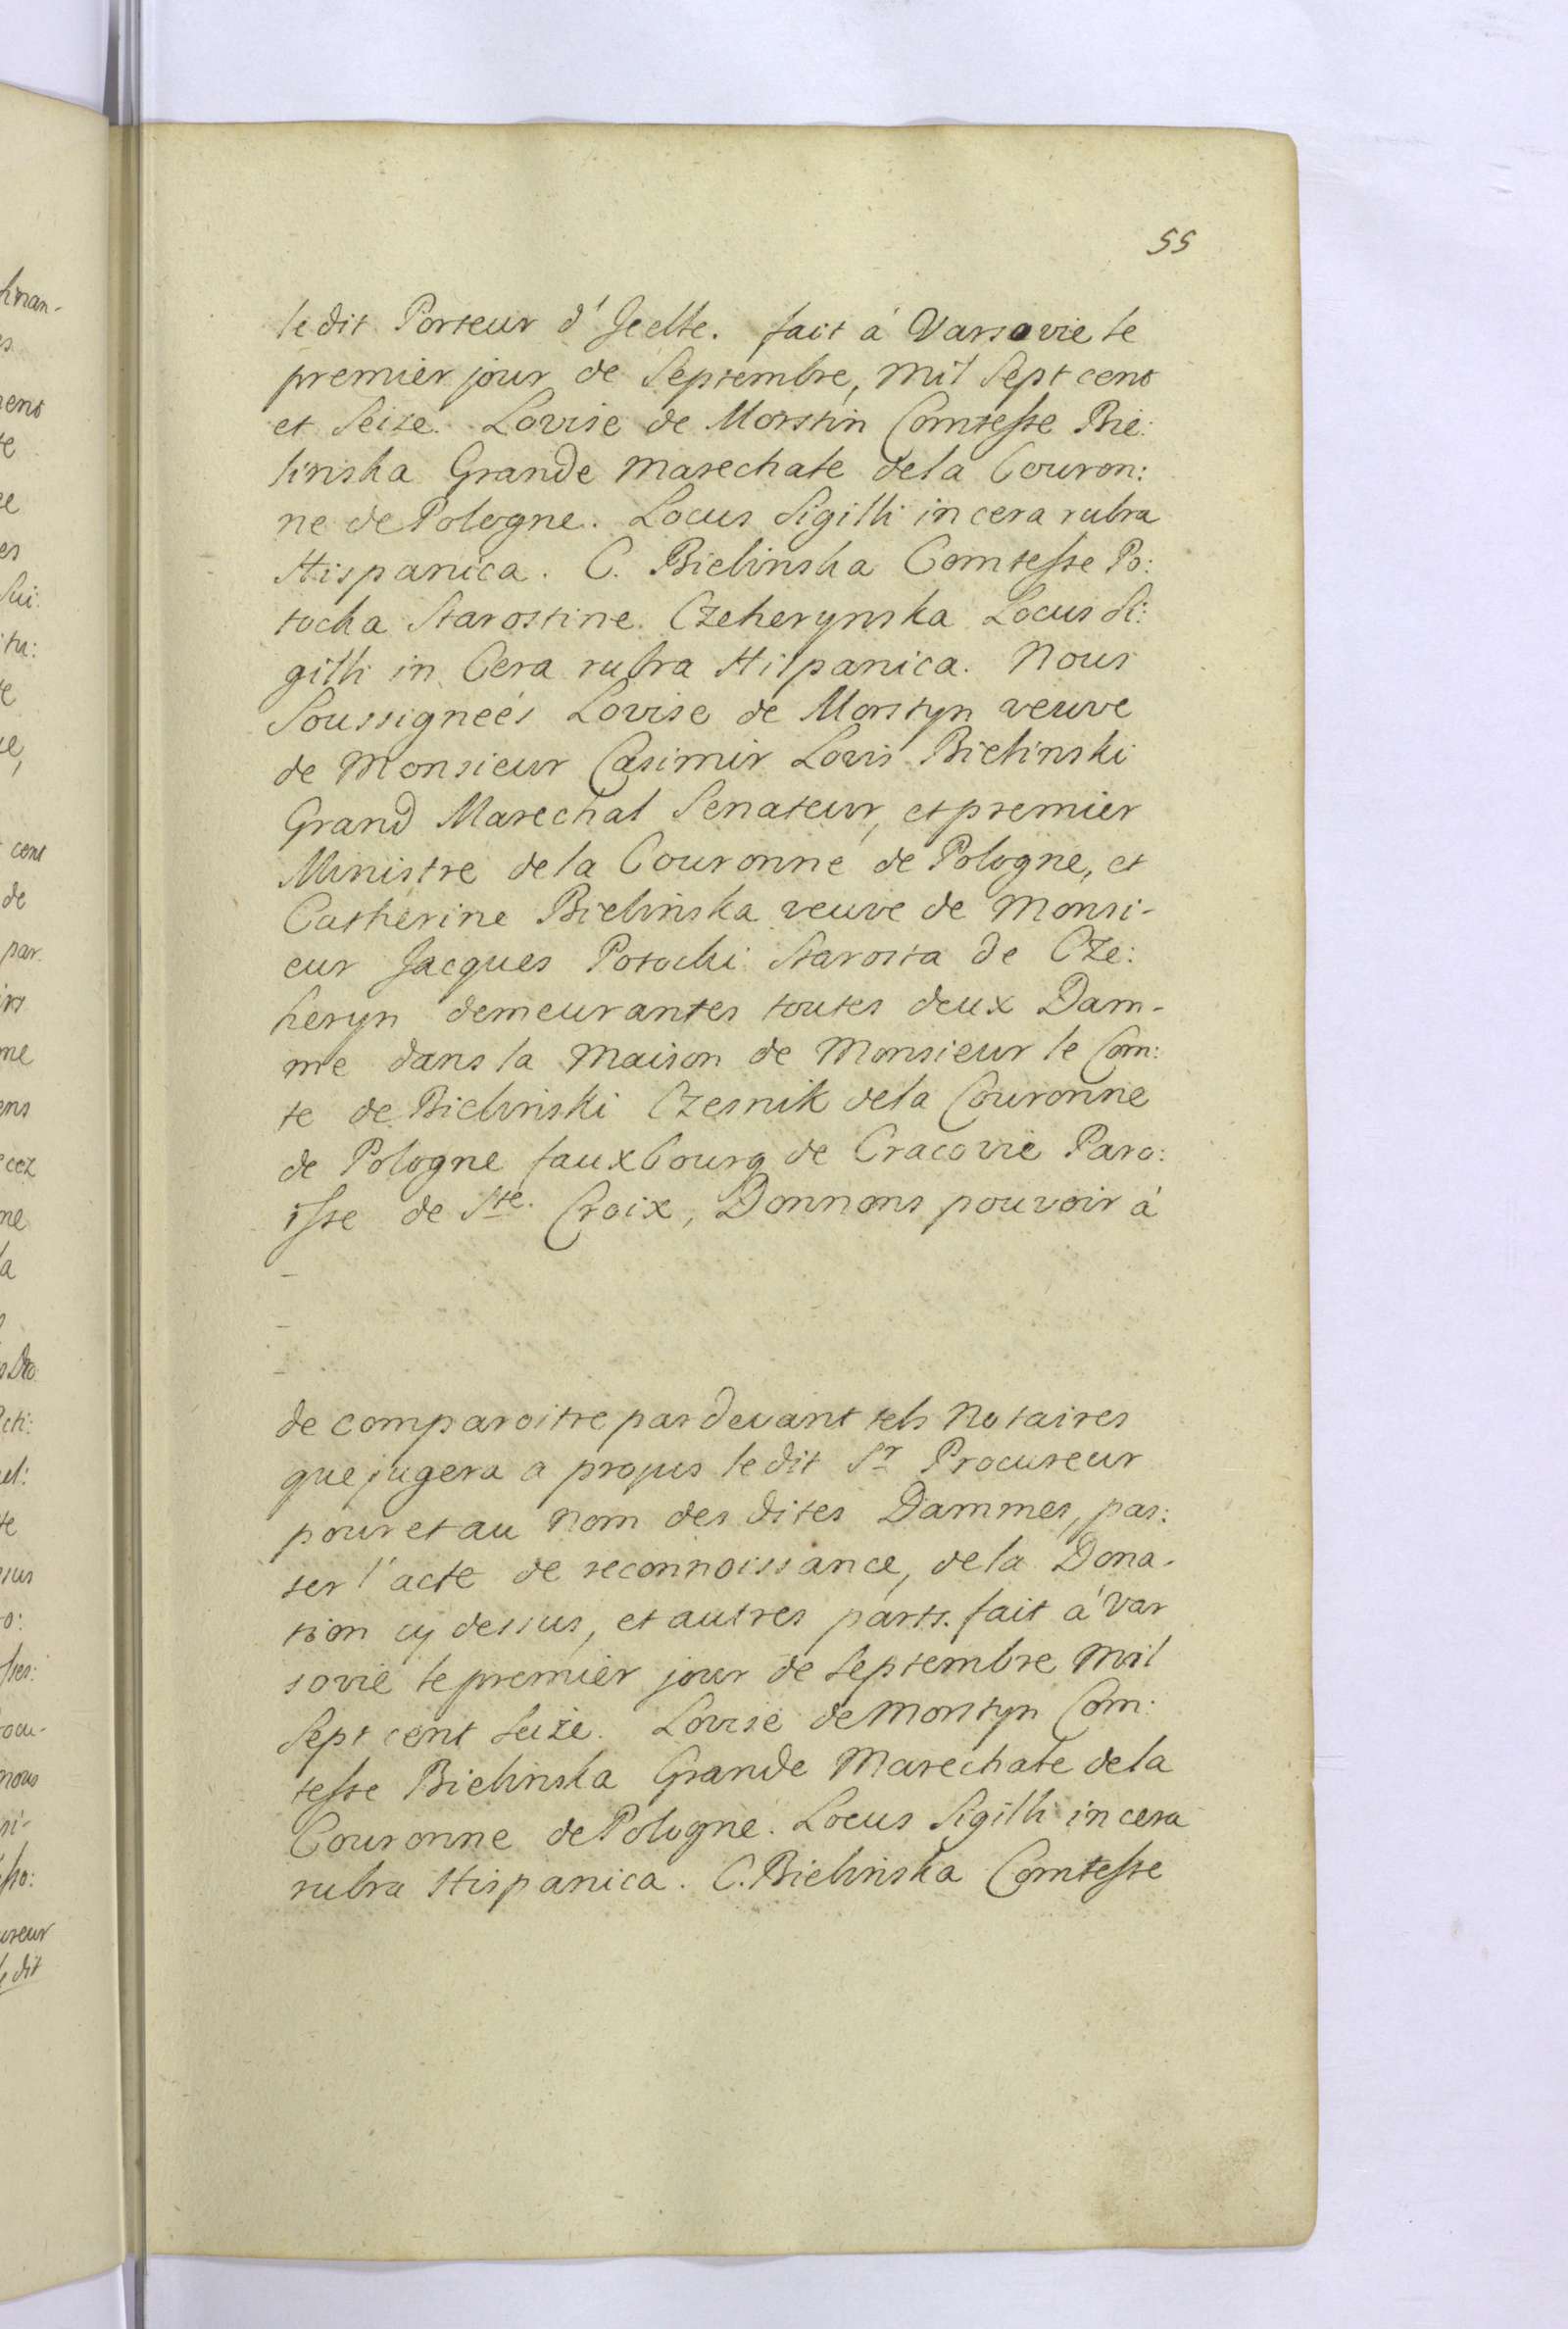 55
le dit Porteur d'Jcelle. fait á Varsovie le
premier jour de Septembre, mil Sept cent
et Seize. Lovise de Morstin Comtesse Bie:
linska Grande Marechale dela Couron:
ne de Pologne. Locus Sigilli in cera rubra
Hispanica. C. Bielinska Comtesse Po:
tocka Starostine. Czeherynska Locus Si:
gilli in Cera rubra Hispanica. Nous
Soussigneés Lovise de Morstyn veuve
de Monsieur Casimir Lovis Bielinski
Grand Marechal Senateur, et premier
Ministre de la Couronne de Pologne, et
Catherine Bielinska veuve de Monsi-
eur Jacques Potocki Starosta de Cze:
heryn demeurantes toutes deux Dam-
me dans la Maison de Monsieur le Com:
te de Bielinski Czesnik dela Couronne
de Pologne fauxbourg de Cracovie Paro:
isse de Ste. Croix, Donnons pouvoir à
-
-
-
de comparoitre pardevant tels Notaires
que jugera a propus le dit Sr Procureur
pour et au Nom des dites Dammes, pas:
ser l'acte de reconnoissance, de la Dona-
tion cy dessus, et autres parts. fait á Var
sovie le premier jour de Septembre Mil
Sept cent Seize. Lovise de Morstyn Com:
tesse Bielinska Grande Marechale dela
Couronne de Pologne. Locus Sigilli in cera
rubra Hispanica. C. Bielinska Comtesse